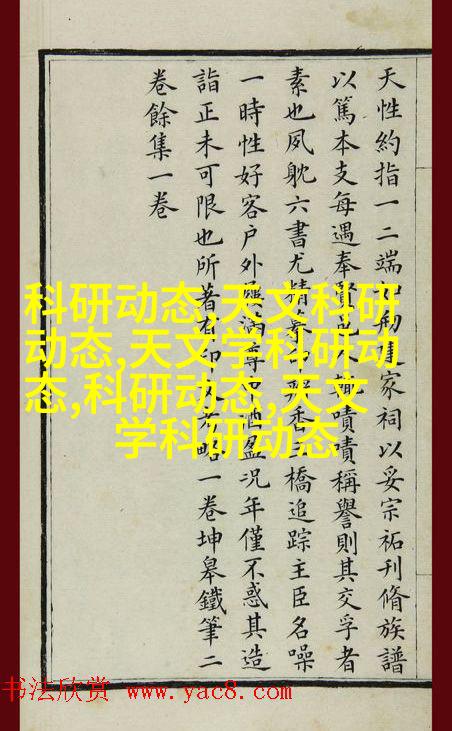 天性約指一二端建家祠以妥宗祏刊脩族譜
以篤本支每遇奉賢邑人輒嘖嘖稱譽則其交孚者
素也夙躭六書尤精篆香三橋追踪主臣名噪
一時性好客户外屨滿尊中酒盈況年僅不惑其造
詣正未可限也所著有印略一卷坤臯鐵筆二
卷餘集一卷
科研动态,天文科研
动态,天文学科研动
态,科研动态,天文
学科研动态
书法欣赏 www.yac8.com